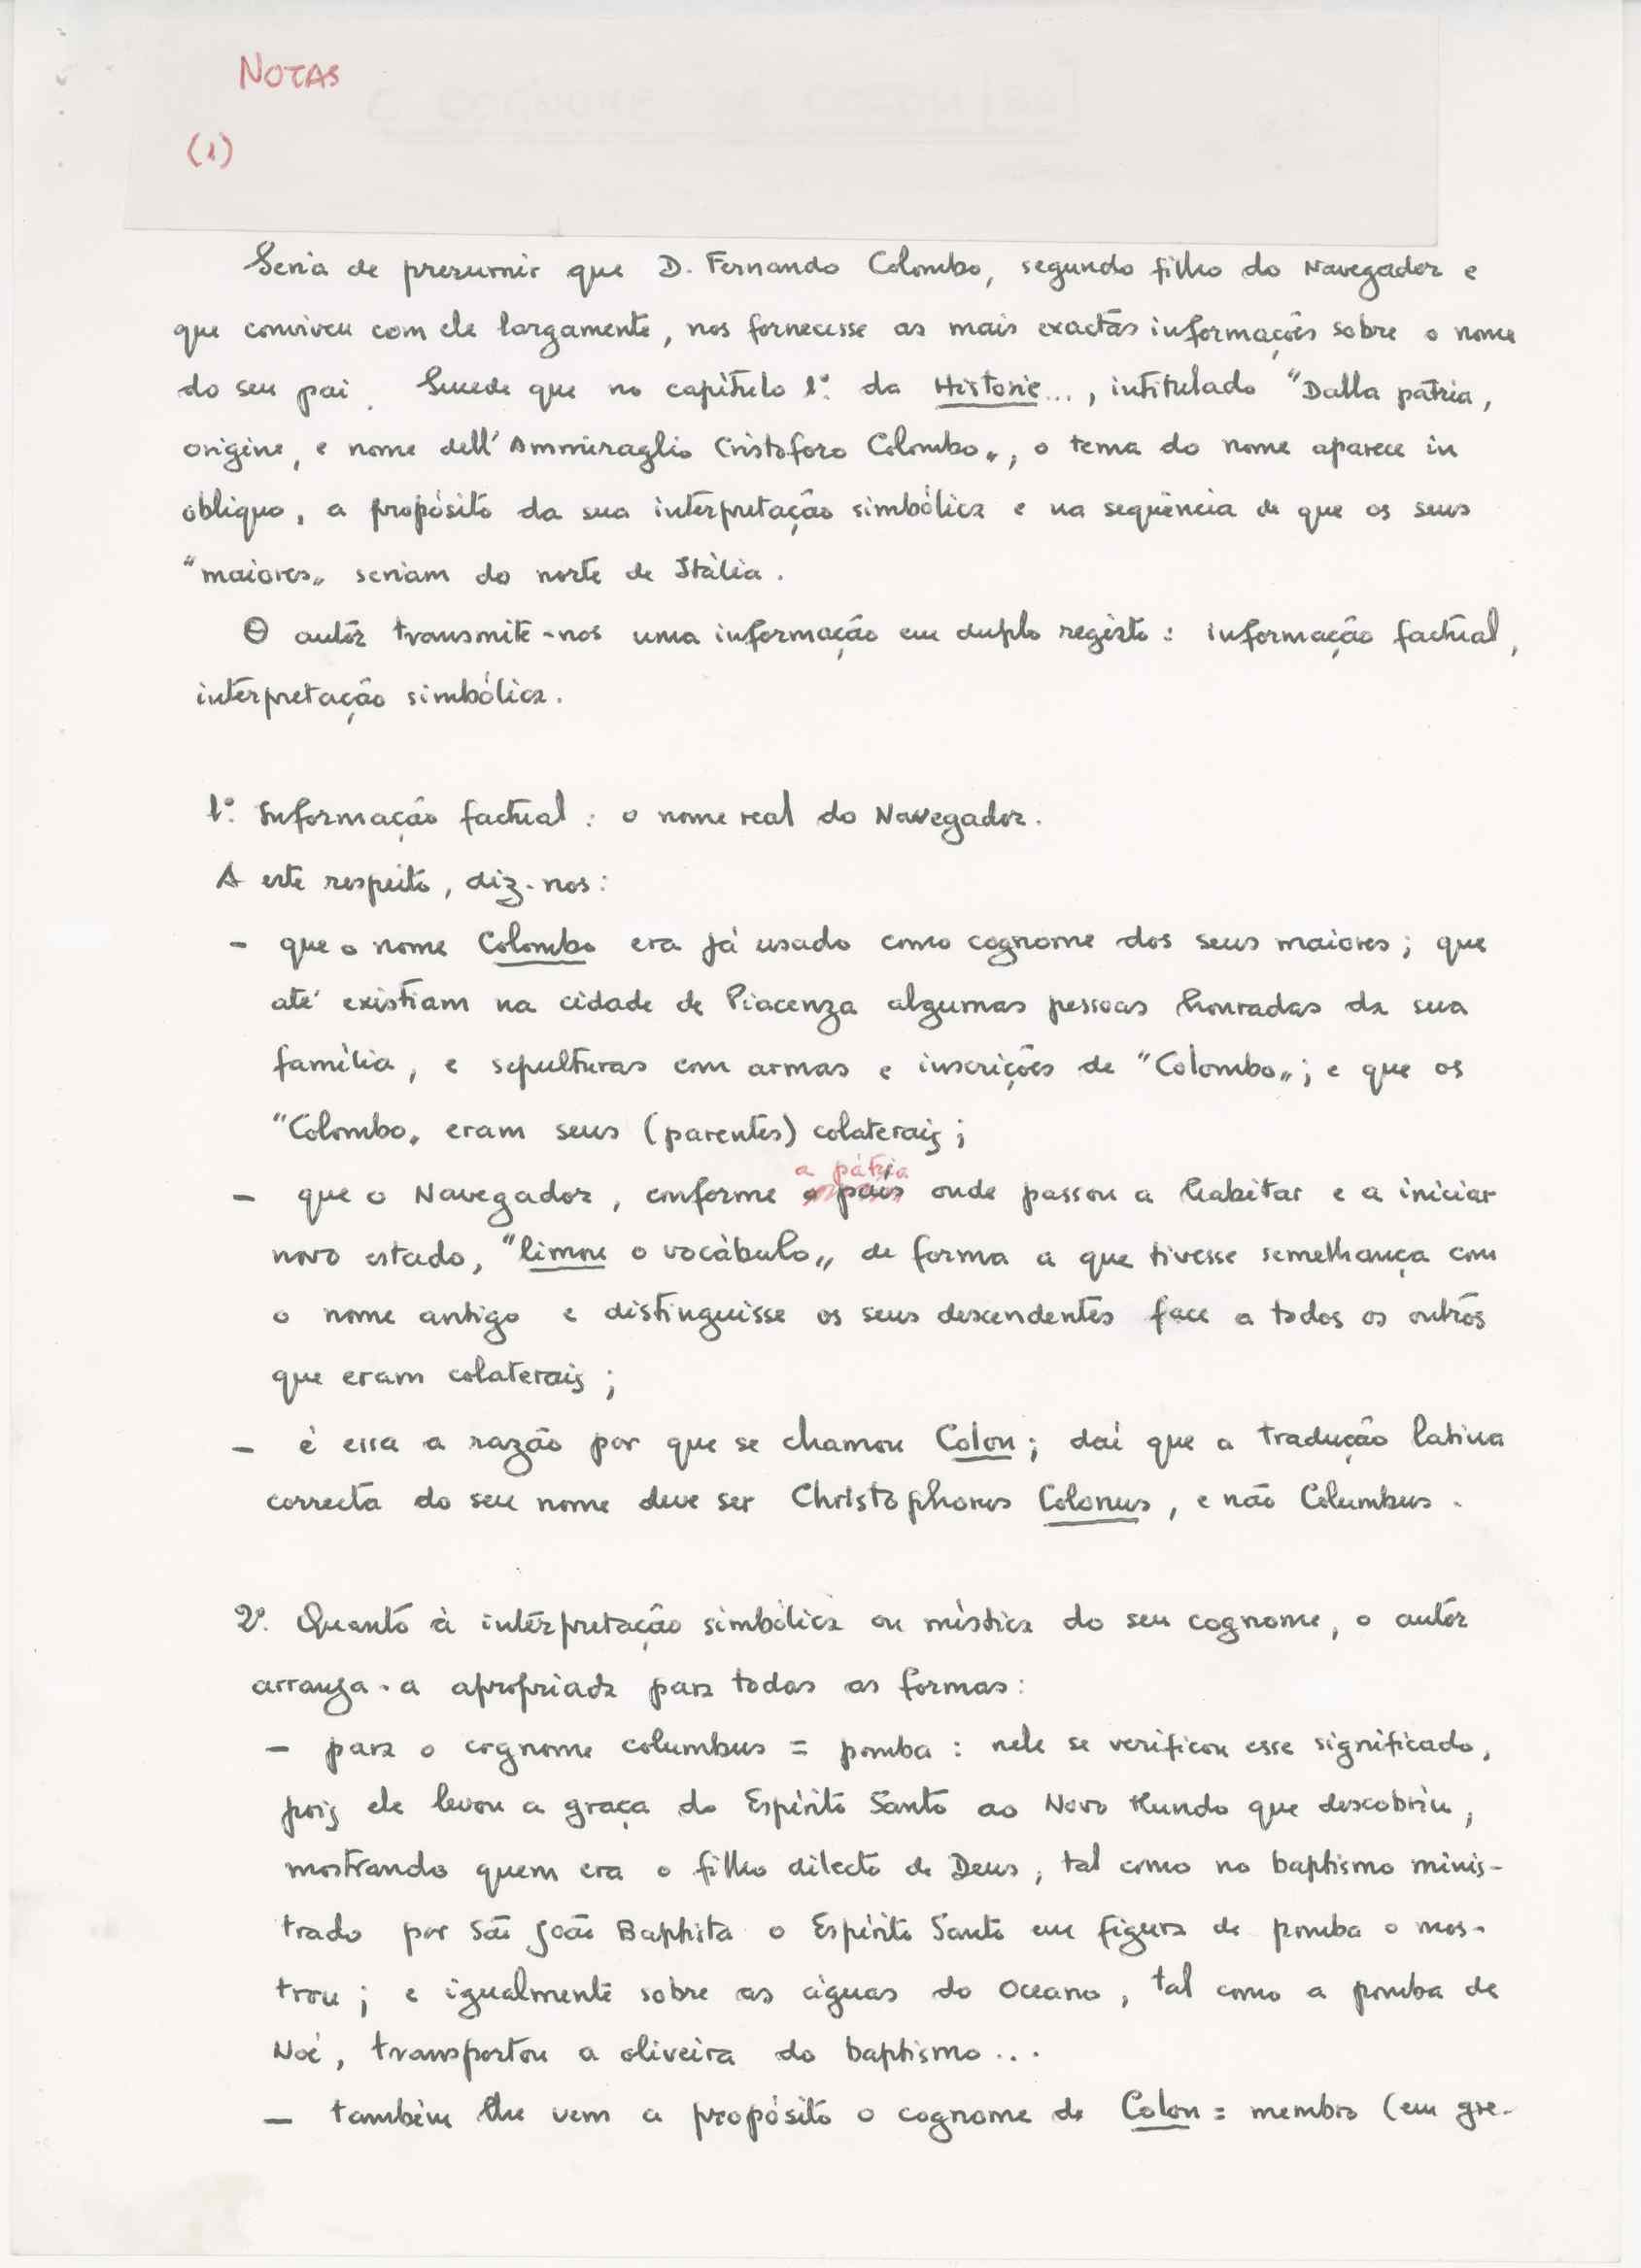 NOTAS
(1)
Seria de presumir que D. Fernando Colombo, segundo filho do Navegador e
que conviveu com ele largamente, nos fornecesse as mais exactas informações sobre o nome
do seu pai. Sucede que no capítulo 1º. da Historie..., intitulado "Dalla pátria,
origine, e nome dell'Ammiraglio Cristoforo Colombo", o tema do nome aparece in
obliquo, a propósito da sua interpretação simbólica e na seqüência de que os seus
"maiores" seriam do norte de Itália.
O autor transmite-nos uma informação em duplo registo: informação factual,
interpretação simbólica.
1º. Informação factual: o nome real do Navegador.
A este respeito, diz-nos:
- que o nome Colombo era já usado como cognome dos seus maiores; que
até existiam na cidade de Piacenza algumas pessoas honradas da sua
família, e sepulturas com armas e inscrições de "Colombo"; e que os
"Colombo" eram seus (parentes) colaterais;
a pátria
- que o Navegador, conforme o país onde passou a habitar e a iniciar
novo estado, "limou o vocábulo" de forma a que tivesse semelhança com
o nome antigo e distinguisse os seus descendentes face a todos os outros
que eram colaterais;
- é essa a razão por que se chamou Colon; daí que a tradução latina
correcta do seu nome deve ser Christophorus Colonus, e não Columbus.
2º. Quanto à interpretação simbólica ou mística do seu cognome, o autor
arranja-a apropriada para todas as formas:
- para o cognome columbus = pomba: nele se verificou esse significado,
pois ele levou a graça do Espírito Santo ao Novo Mundo que descobriu,
mostrando quem era o filho dilecto de Deus, tal como no baptismo minis-
trado por São João Baptista o Espírito Santo em figura de pomba o mos-
trou; e igualmente sobre as águas do Oceano, tal como a pomba de
Noé, transportou a oliveira do baptismo...
- também lhe vem a propósito o cognome de Colon = membro (em gre-